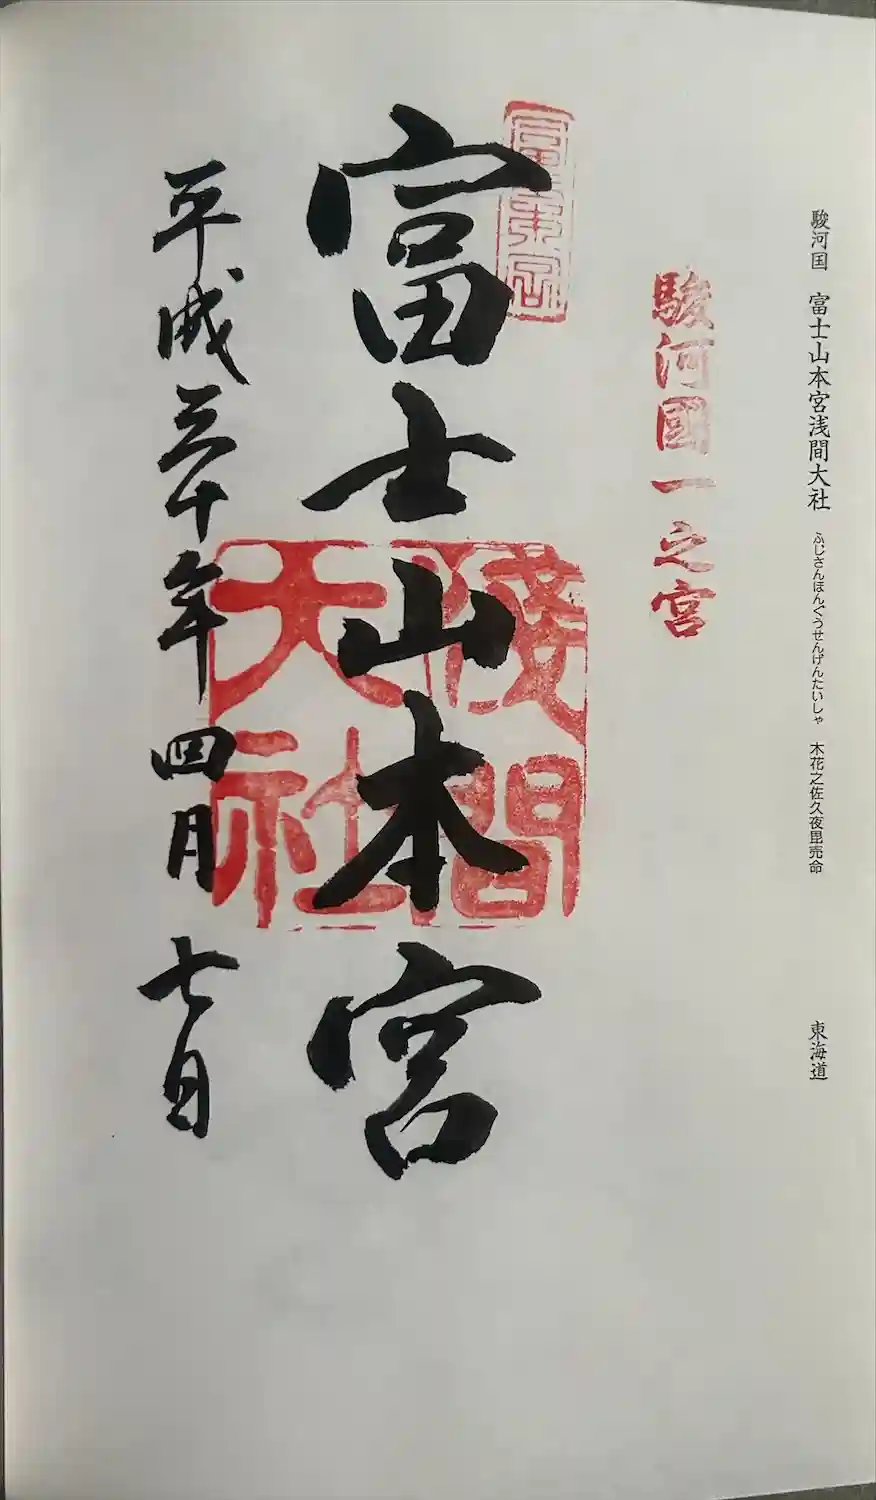 駿河国 富士山本宮浅間大社 ふじさんほんぐうせんげんたいしゃ 木花之佐久夜毘売命 東海道
駿河國一之宮
富士山本宮
淺間
大社
平成三十年四月七日